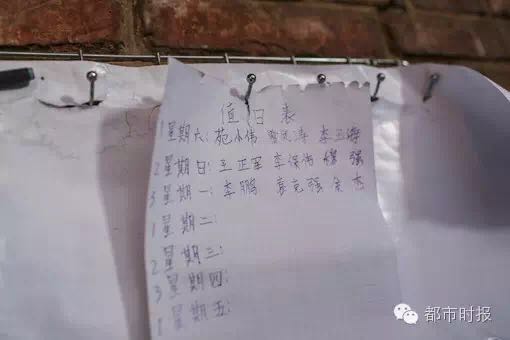 值日表
1星期六: 苑小伟 李玉涛
2星期日: 王正军 李保伟 穆强
3星期一: 李鹏 袁克强 余杰
1星期二:
2星期三:
3星期四:
1星期五:
都市时报